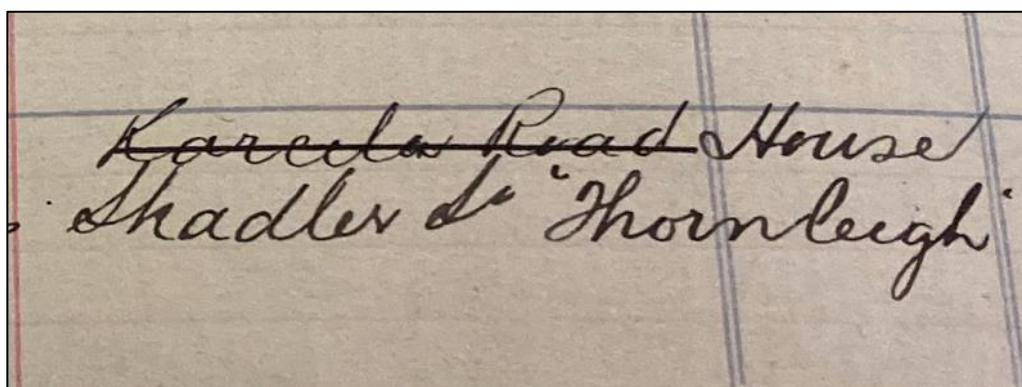 Kareela Road House
Shadler St "Thornleigh"